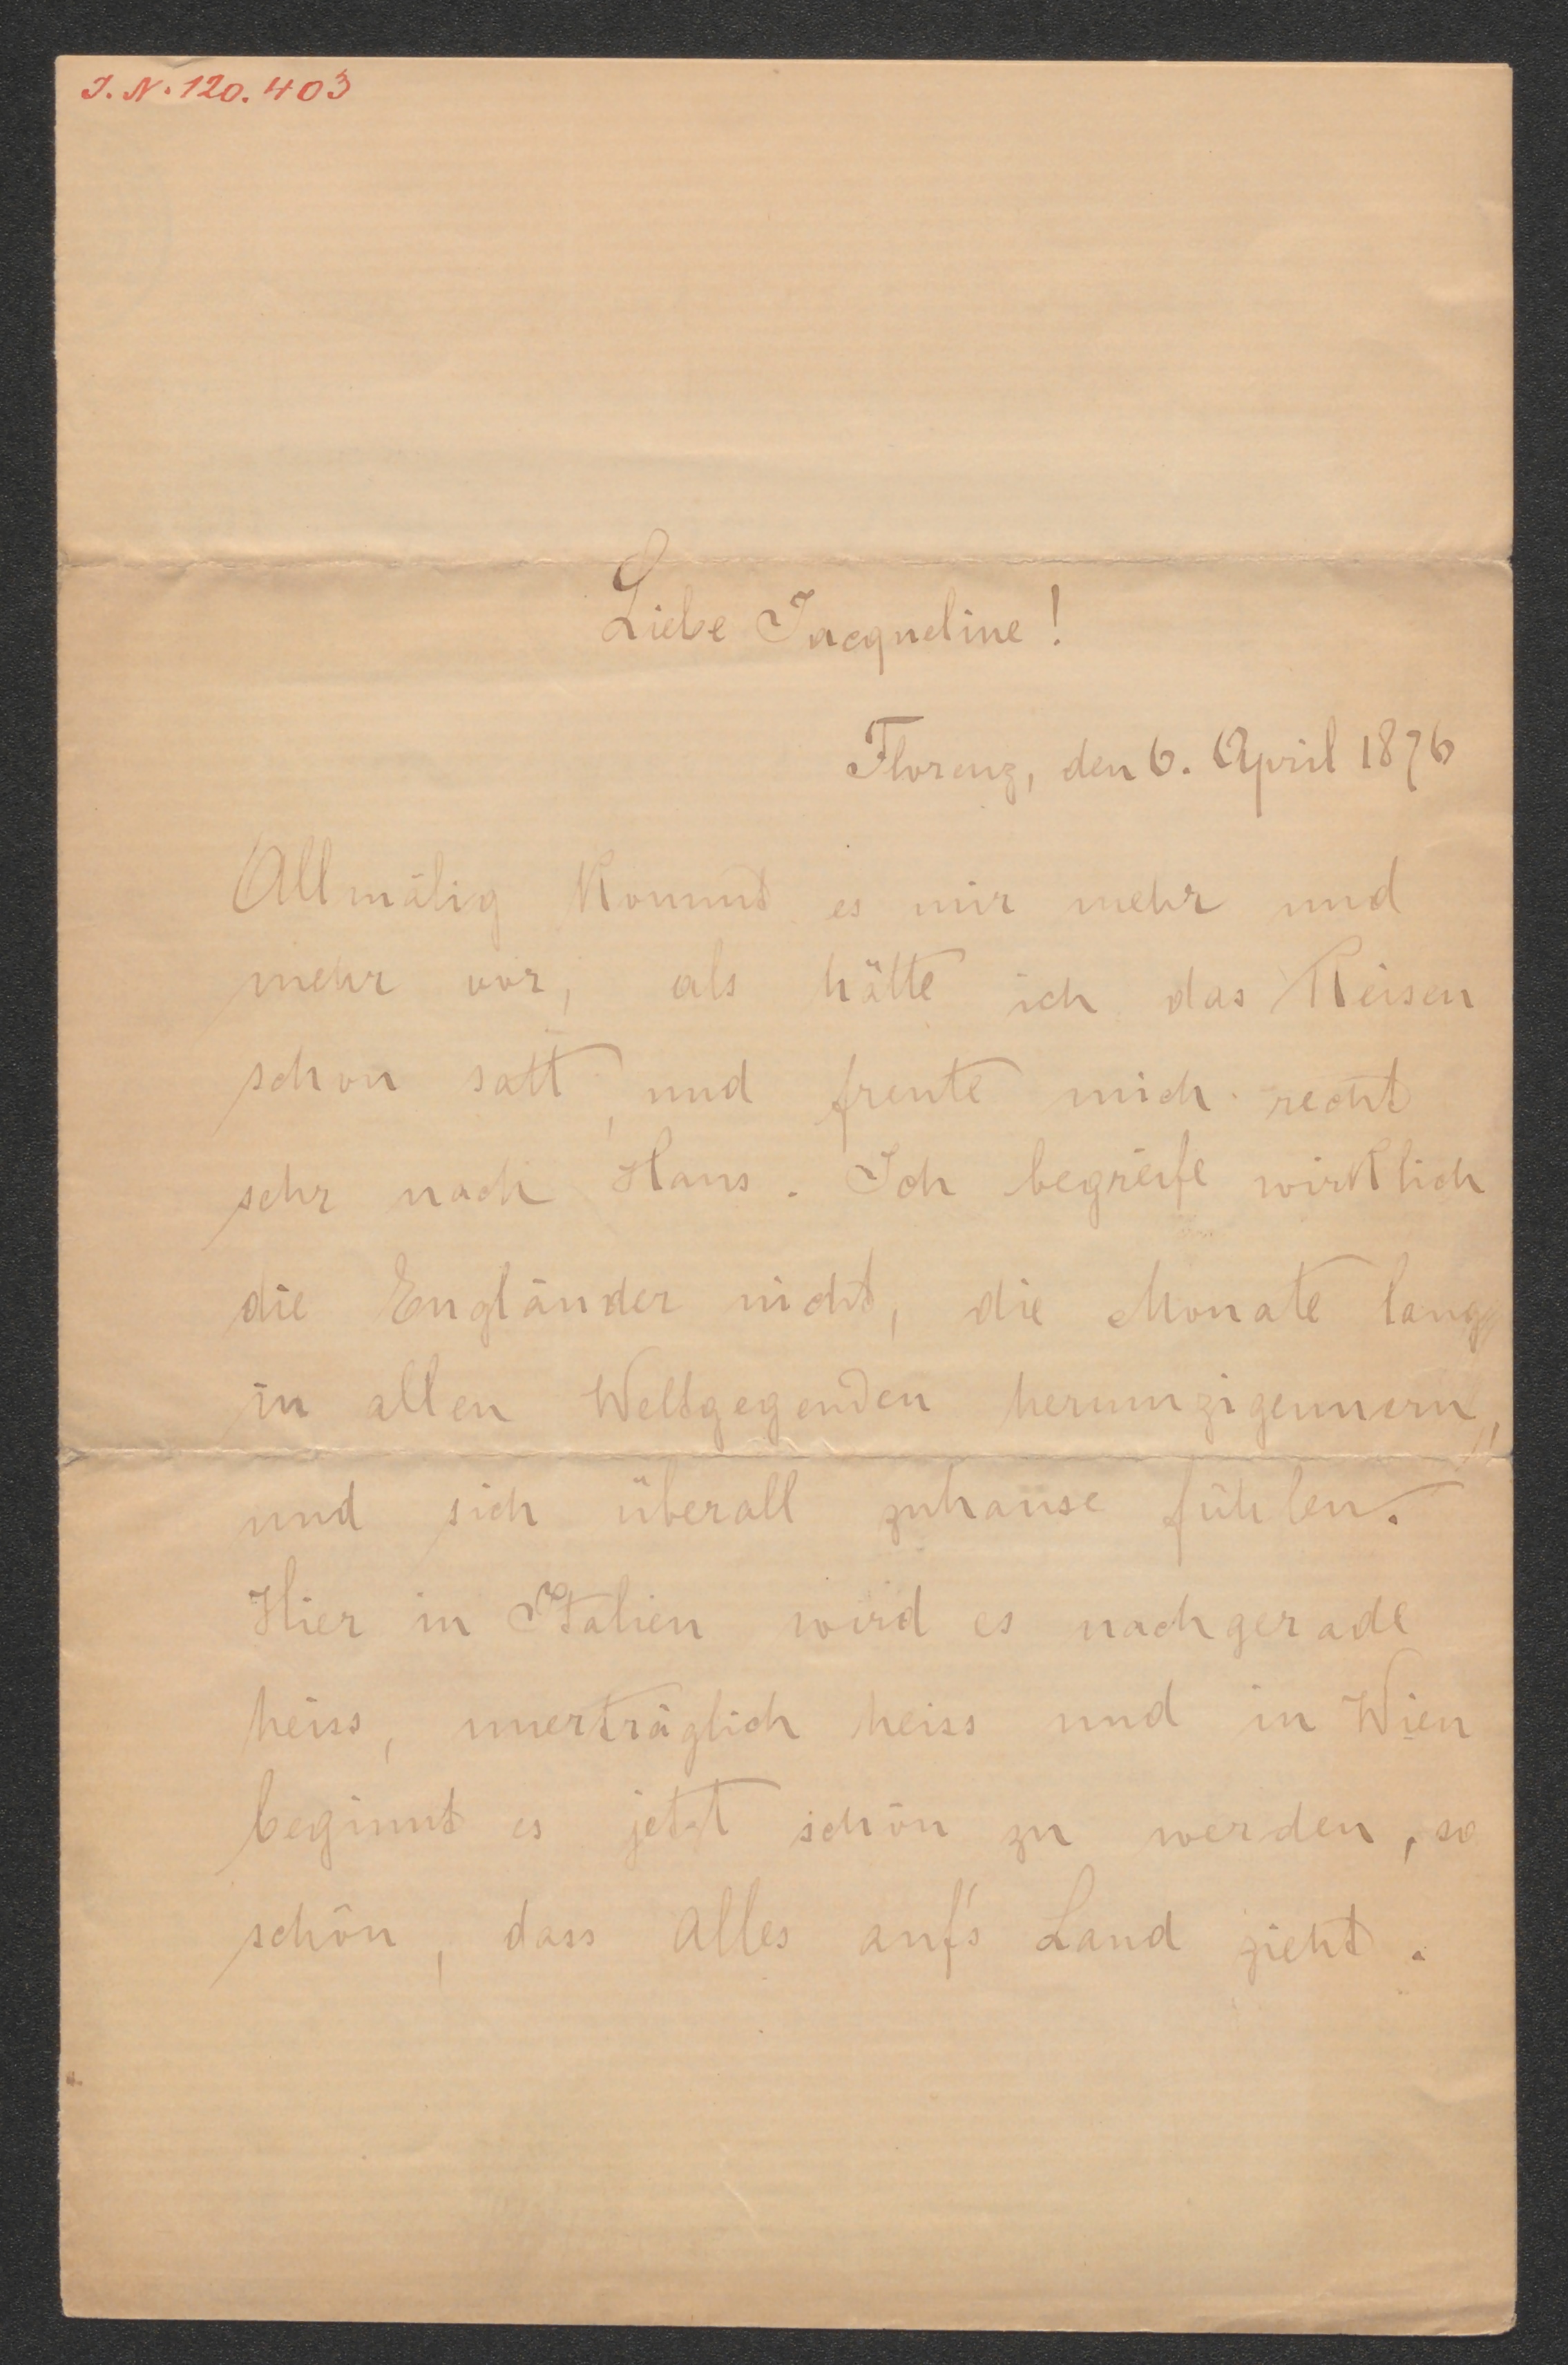 I. N. 120.403
Liebe Jacqueline!
Florenz, den 6. April 1876
Allmälig kommt es mir mehr und
mehr vor, als hätte ich das Reisen
schon satt, und freute mich recht
sehr nach Haus. Ich begreife wirklich
die Engländer nicht, die Monate lang
in allen Weltgegenden herumzigeunern,
und sich überall zuhause fühlen.
Hier in Italien wird es nachgerade
heiss, unerträglich heiss und in Wien
beginnt es jetzt schön zu werden, so
schön, dass alles auf's Land zieht.